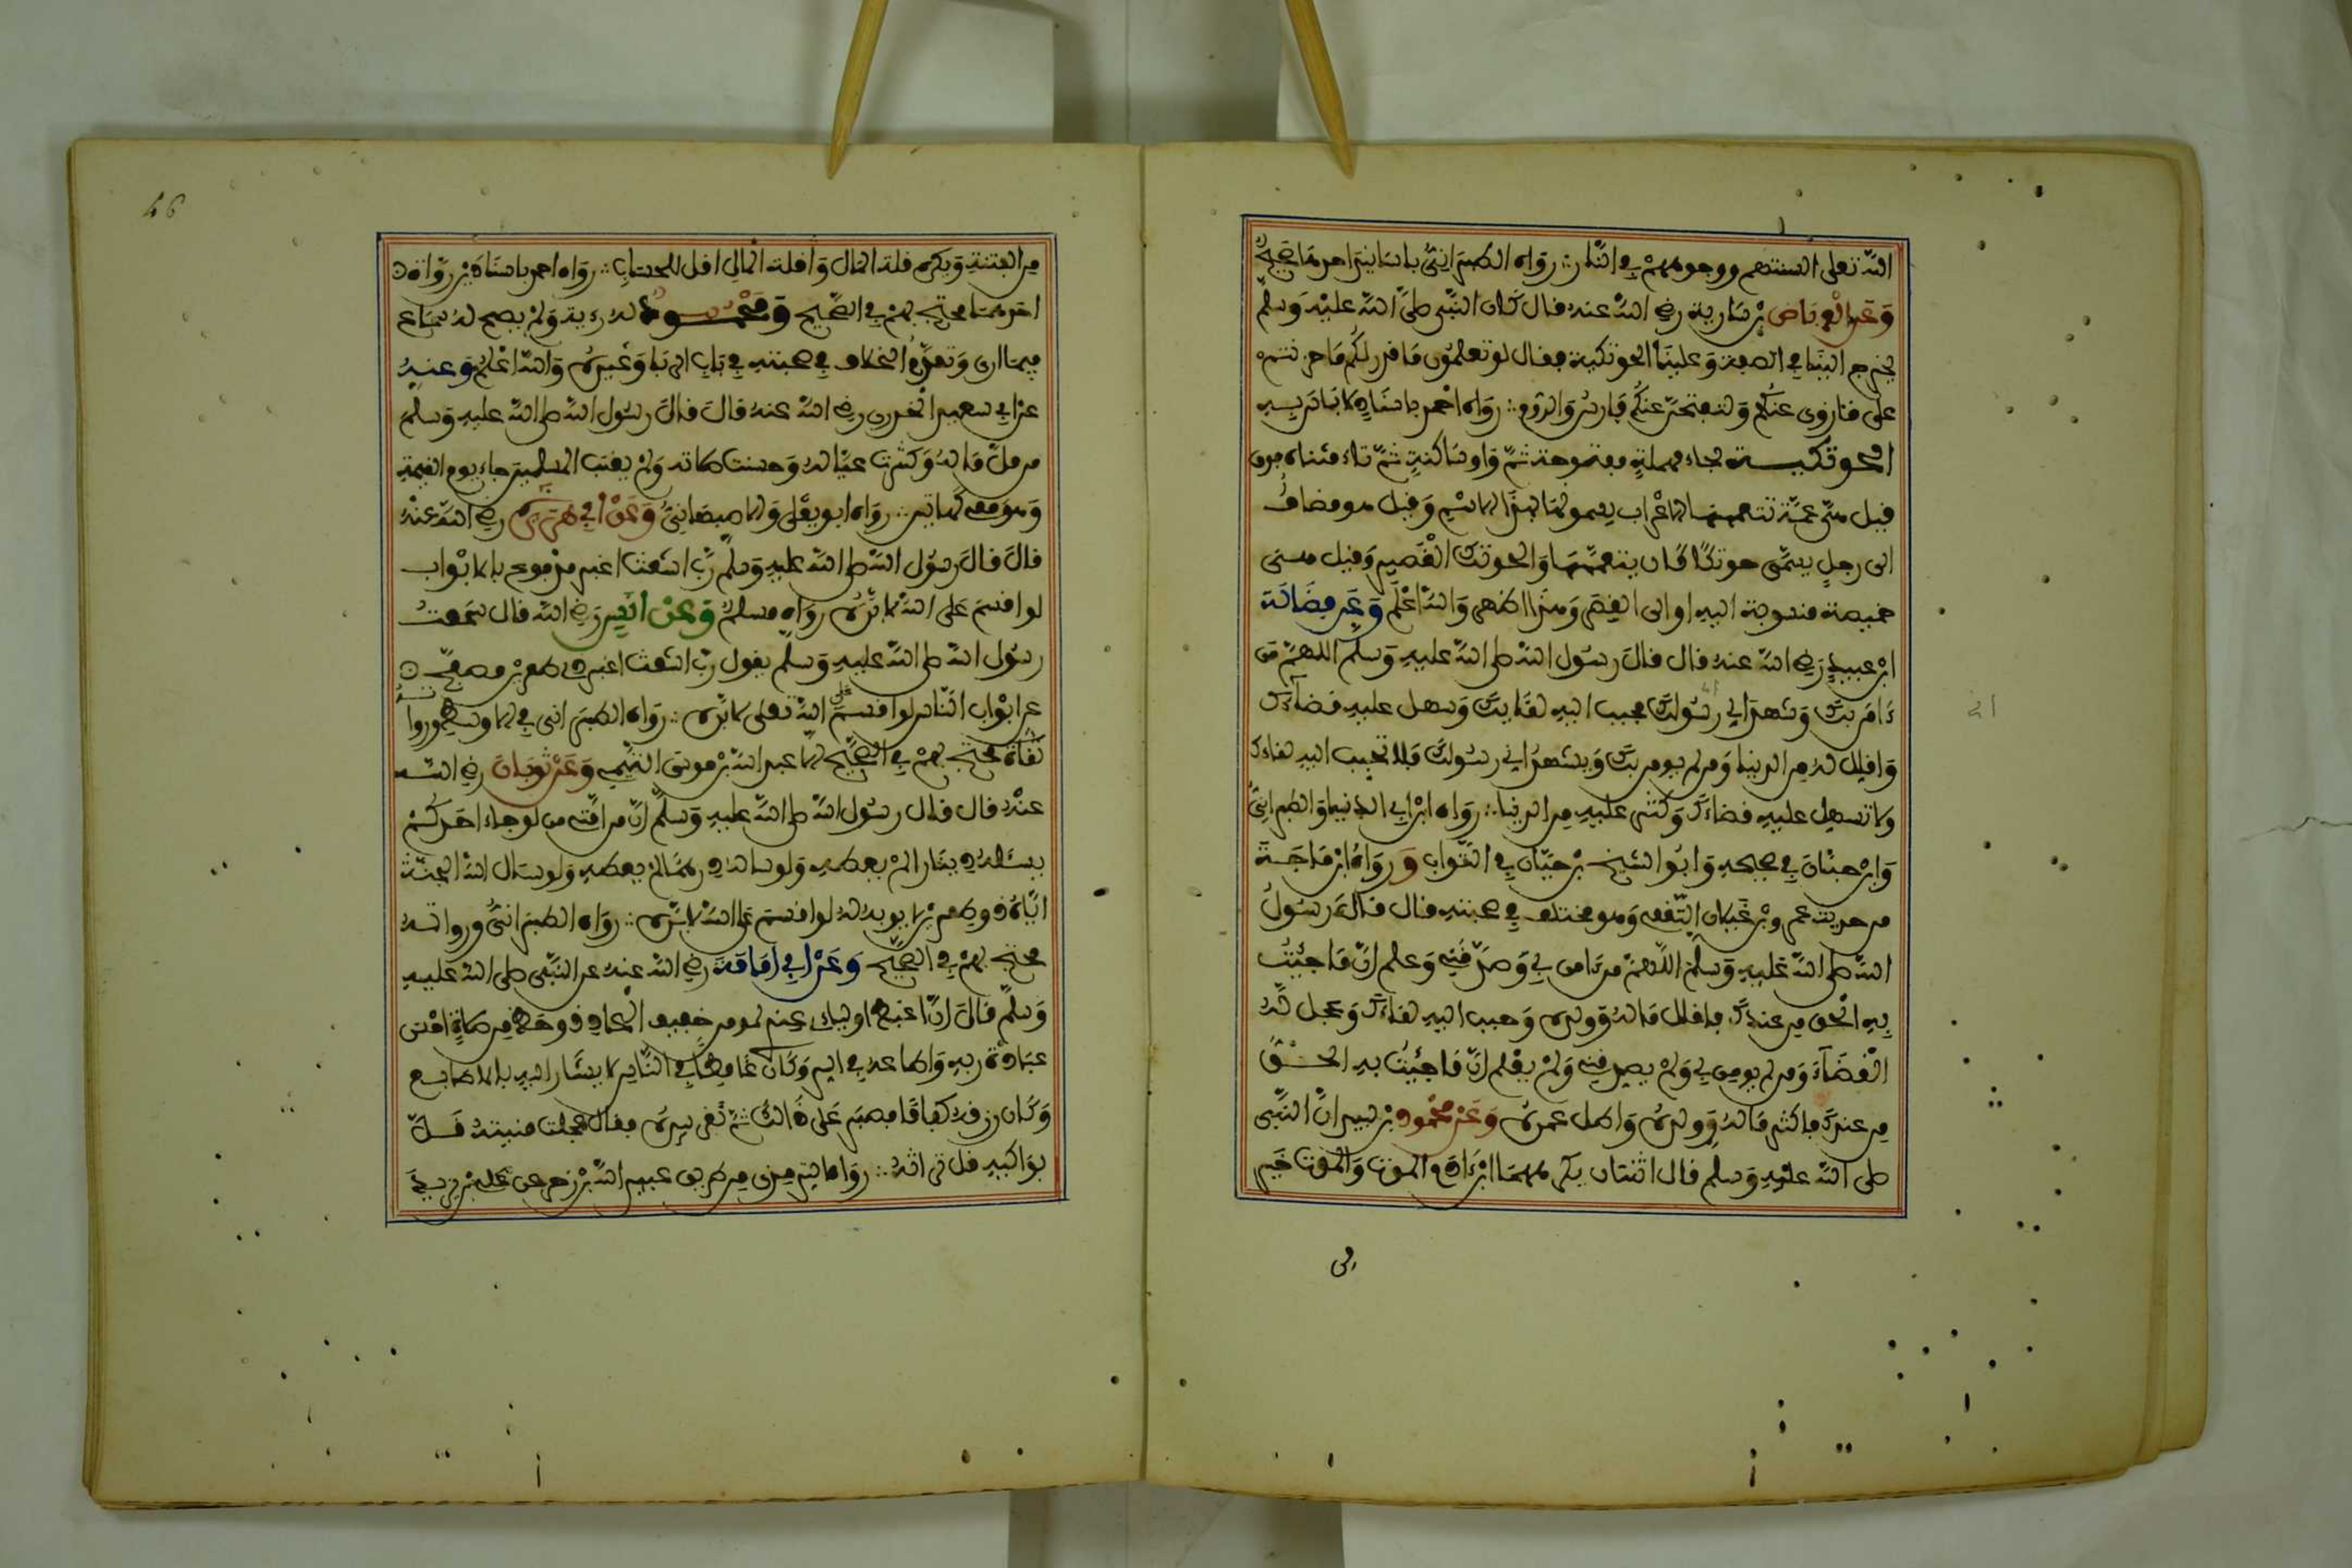 الله تعلى السنتهم ووجوههم في النار رواه الطبراني باسانيد احدها صحيح
وعن العرباض بن سارية رضي الله عنه قال كان النبي صلى الله عليه وسلم
يخرج الينا في الصفة وعلينا الحوتكية فقال لو تعلمون ما ذخر لكم ما حزنتم
على ما زوي عنكم ولتفتحن عنكم فارس والروم رواه احمد باسناد لا باس به
الحوتكية بحاء مهملة مفتوحة ثم واو ساكنة ثم تاء مثناة فوق
قيل هي عمة تتعممها الاعراب يسمونها بهذا الاسم وقيل هو مضاف
الى رجل يسمى حوتكا كان يتعممها والحوتك القصير وقيل هي
خميصة منسوبة اليه او الى القصر وهذا اظهر والله اعلم وعن فضالة
ابن عبيد رضي الله عنه قال قال رسول الله صلى الله عليه وسلم اللهم من
ءامن بك وشهد اني رسولك فحبب اليه لقاءك وسهل عليه قضاءك
واقلل له من الدنيا ومن لم يومن بك ويشهد اني رسولك فلا تحبب اليه لقاءك
ولا تسهل عليه قضاءك وكثر عليه من الدنيا رواه ابن ابي الدنيا والطبراني
وابن حبان في صحيحه وابو الشيخ بن حيان في الثواب ورواه ابن ماجة
من حديث عمرو بن غيلان الثقفي وهو مختلف في صحبته قال قال رسول
الله صلى الله عليه وسلم اللهم من ءامن بي وصدقني وعلم ان ما جئت
به الحق من عندك فاقلل ماله وولده وحبب اليه لقاءك وعجل له
القضاء ومن لم يومن بي ولم يصدقني ولم يعلم ان ما جئت به الحق
من عندك فاكثر ماله وولده واطل عمره وعن محمود بن لبيد ان النبي
صلى الله عليه وسلم قال اثنتان يكرههما ابن ءادم الموت والموت خير
من
46
من الفتنة ويكره قلة المال وقلة المال اقل للحساب رواه احمد باسنادين رواة
احدهما محتج بهم في الصحيح ومحمود له رؤية ولم يصح له سماع
فيما ارى وتقدم الخلاف في صحبته في باب الربا وغيره والله اعلم وعنه
عن ابي سعيد الخدري رضي الله عنه قال قال رسول الله صلى الله عليه وسلم
من قل ماله وكثرت عياله وحسنت صلاته ولم يغتب المسلمين جاء يوم القيمة
وهو معي كهاتين رواه ابو يعلى والاصبهاني وعن ابي هريرة رضي الله عنه
قال قال رسول الله صلى الله عليه وسلم رب اشعث اغبر مدفوع بالابواب
لو اقسم على الله لابره رواه مسلم وعن انس رضي الله قال سمعت
رسول الله صلى الله عليه وسلم يقول رب اشعث اغبر ذي طمرين مصفح
عن ابواب الناس لو اقسم على الله تعلى لابره رواه الطبراني في الاوسط ورواته
ثقاة محتج بهم في الصحيح الا عبد الله بن موسى التيمي وعن ثوبان رضي الله
عنه قال قال رسول الله صلى الله عليه وسلم ان من امتي من لو جاء احدكم
يسئله دينارا لم يعطه ولو ساله درهما لم يعطه ولو سال الله الجنة
اياه ذو طمرين لا يوبه له لو اقسم على الله لابره رواه الطبراني ورواته
محتج بهم في الصحيح وعن ابي امامة رضي الله عنه عن النبي صلى الله عليه
وسلم قال ان اغبط اوليائي عندي لمومن خفيف الحاذ ذو حظ من صلاة احسن
عبادة ربه واطاعه في السر وكان غامضا في الناس لا يشار اليه بالاصابع
وكان رزقه كفافا فصبر على ذالك ثم نفض بيده فقال عجلت منيته قلت
بواكيه قل تراثه رواه الترمذي من طريق عبيد الله بن زحر عن علي بن يزيد